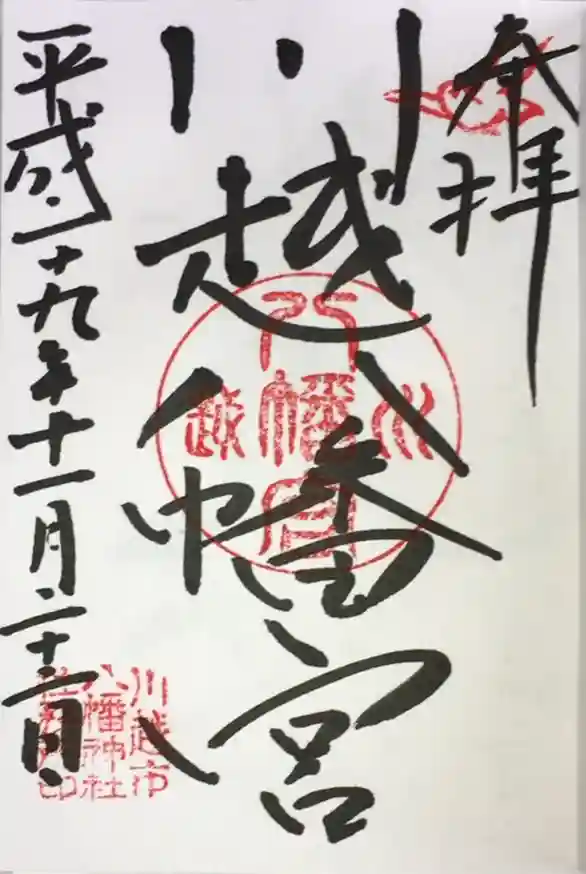 奉拝
川越八幡宮
平成二十九年十一月二十二日
川
八幡宮
越
川越市
八幡神社
社務所印